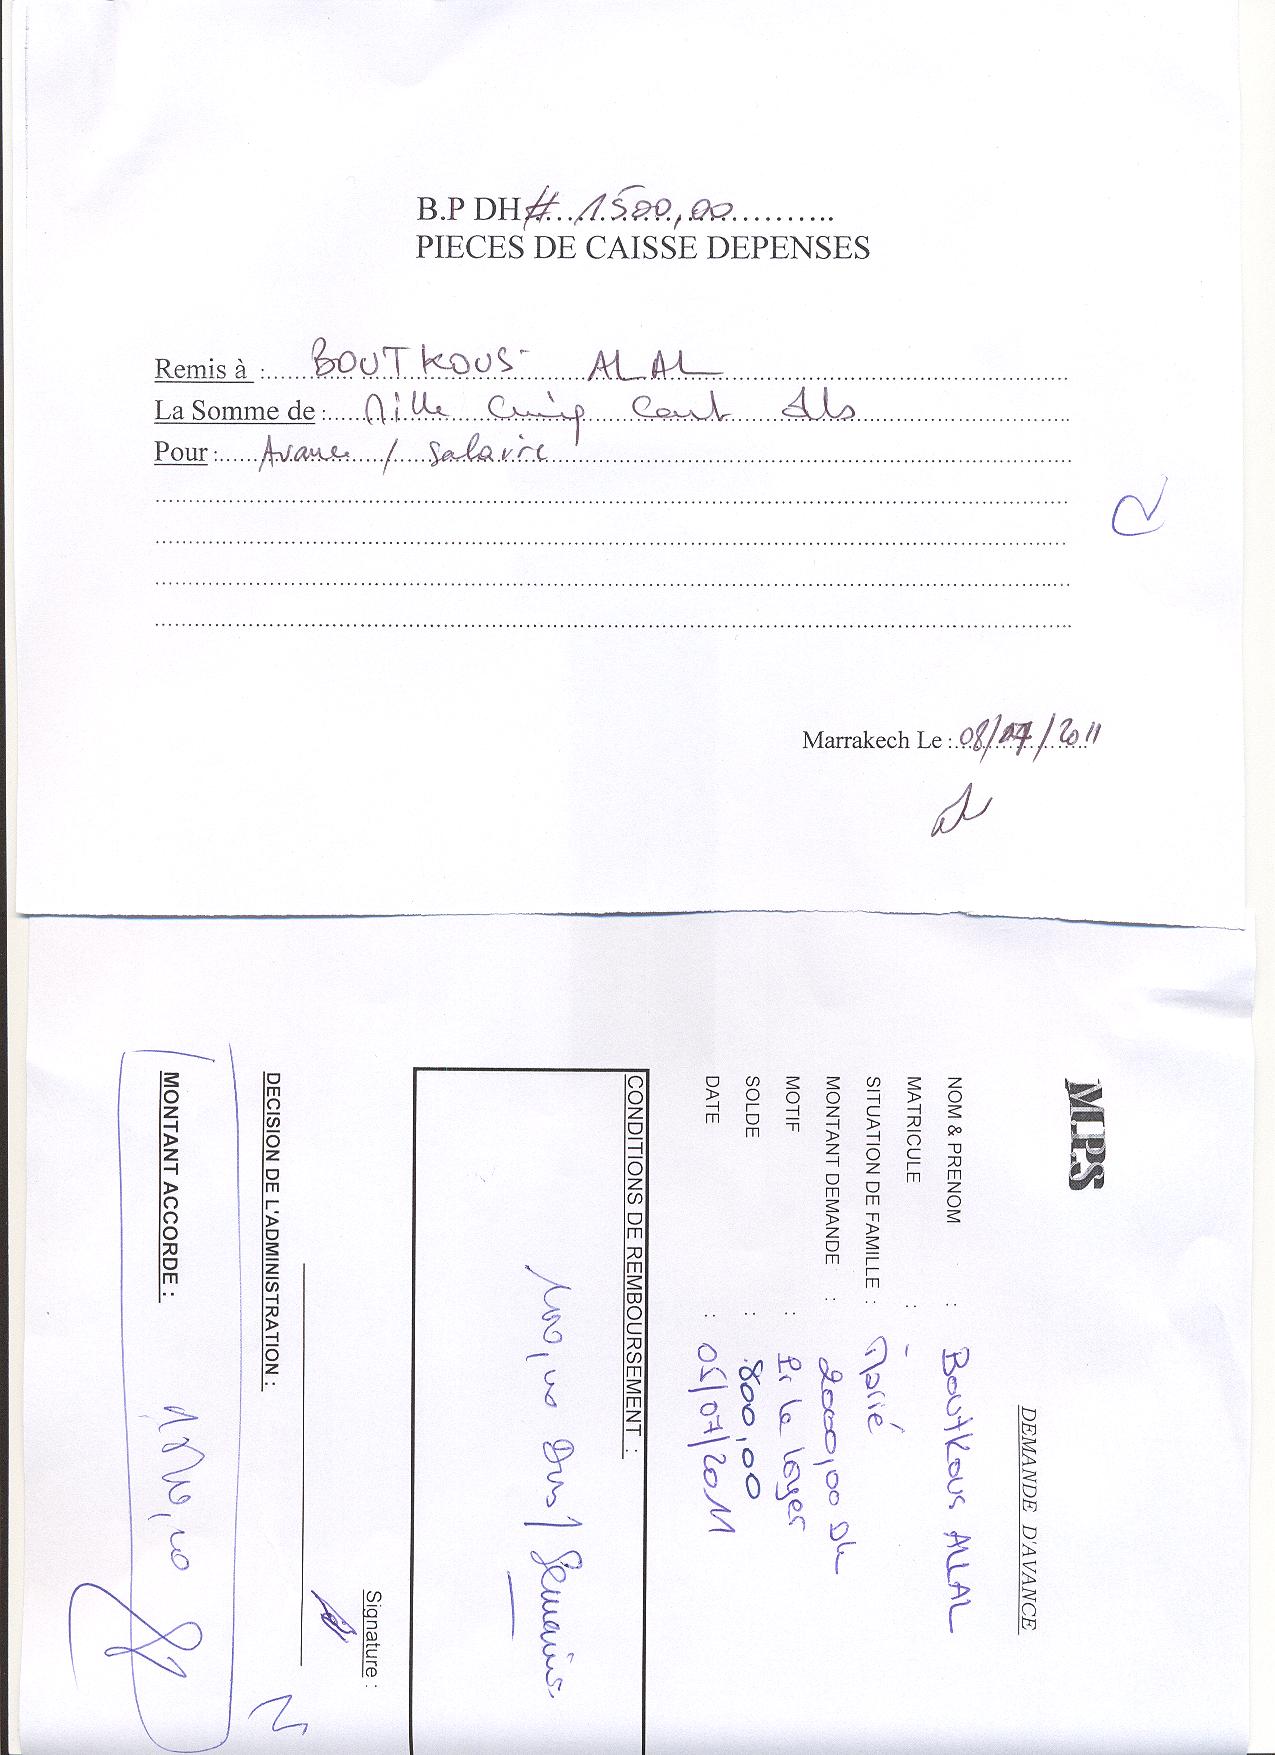 B.P DH # 1500,00
PIECES DE CAISSE DEPENSES
Remis à : BOUTKOUS ALAL
La Somme de : Mille Cinq Cent dhs
Pour : Avance / Salaire
Marrakech Le : 08/07/2011
MPS
DEMANDE D'AVANCE
NOM & PRENOM : Boutkous ALLAL
MATRICULE : -
SITUATION DE FAMILLE : Marié
MONTANT DEMANDE : 2000,00 Dh
MOTIF : Pr le loyer
SOLDE : 800,00
DATE : 05/07/2011
CONDITIONS DE REMBOURSEMENT :
100,00 Dhs / Semaine
Signature :
DECISION DE L'ADMINISTRATION :
MONTANT ACCORDE : 1500,00